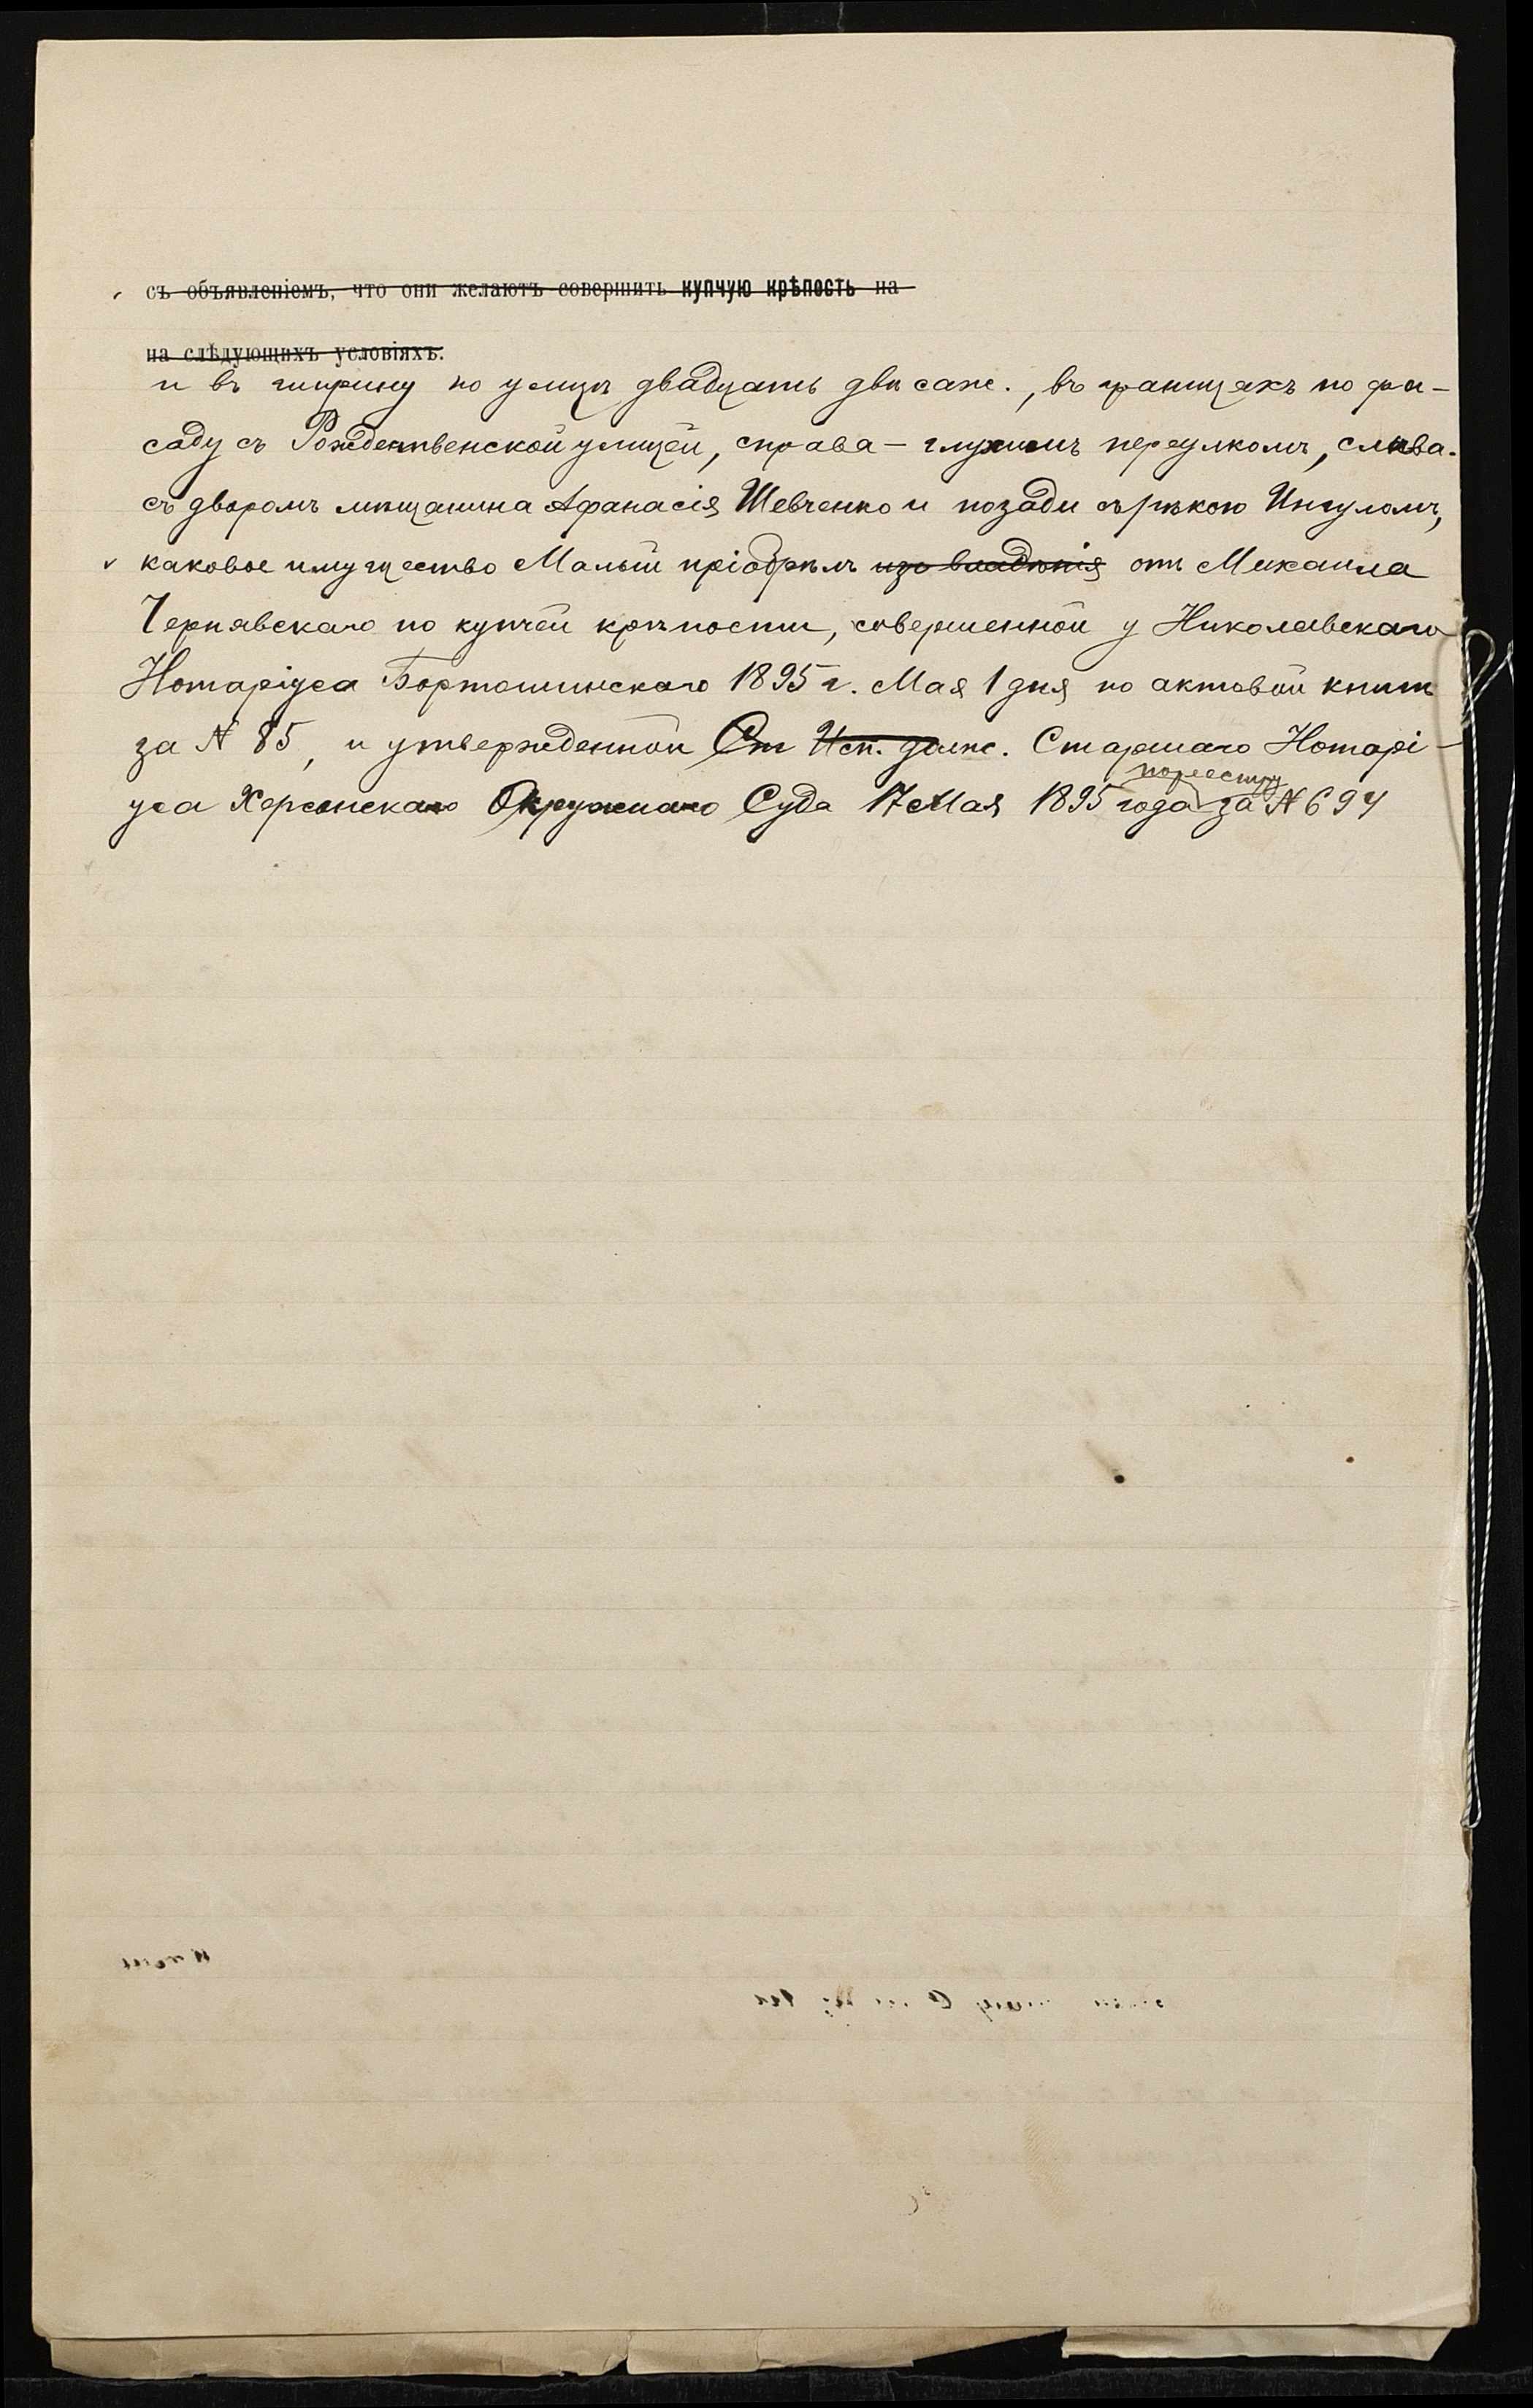 съ объявленіемъ, что они желаютъ совершить купчую крѣпость на
на слѣдующихъ условіяхъ.
и въ ширину по улицѣ двадцать двѣ саж., въ границахъ по фа-
саду съ Рождественской улицей, справа – глухимъ переулкомъ, слѣва.
съ дворомъ мѣщанина Афанасія Шевченко и позади съ рѣкою Ингуломъ,
каковое имущество Малый пріобрѣлъ изо владѣнія отъ Михаила
Чернявскаго по купчей крѣпости, совершенной у Николаевскаго
Нотаріуса Бортошинскаго 1895 г. Мая 1 дня по актовой книгѣ
за N 85, и утвержденной Ст Исп. долж. Старшаго Нотарі-
по реестру
уса Херсонскаго Окружнаго Суда 17 Мая 1895 года за N 694